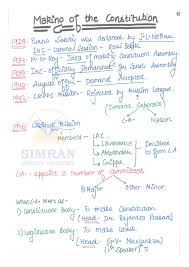 Making of the Constitution
1929- Purna Swaraj was declared by J.L. Nehru
INC - Lahore Session - Ravi
1934- M.N. Roy - Idea of making Constituent Assembly
1935- INC - officially Demanded for Const. Assembly
1940- August offer - Accepted
1942- CRIPPS Mission - Rejected by Muslim League
(Demand Separate
C.A. Nation
1946- Cabinet Mission
Members - LAC
Lawrence
Alexander
Cripps
Decided
to form
C.A
SIMRAN
C.A - appoint a number of committees
8 Major
Other Minor.
When C.A. Meets as
1) Constituent Body - To make Constitution
(Head - Dr. Rajendra Prasad)
2) Legislative Body - To make Laws
(Head - G.V. Mavlankar)
1st Speaker